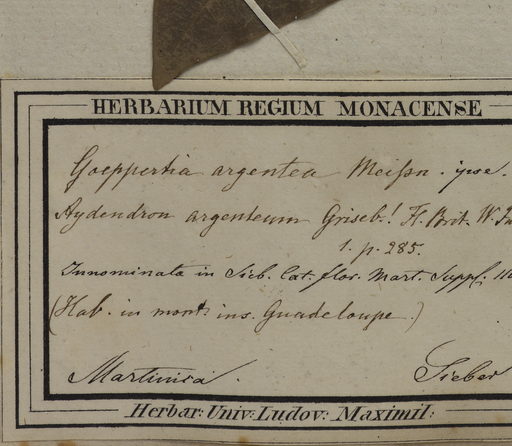 HERBARIUM REGIUM MONACENSE
Goeppertia argentea Meissn. ipse.
Aydendron argenteum Griseb.! Fl. Brit. W. In
1. p. 285.
Innominata in Sieb. Cat. flor. Mart. Suppl.
(Hab. in mont. ins. Guadeloupe.)
Martinica. Sieber
Herbar: Univ: Ludov: Maximil: